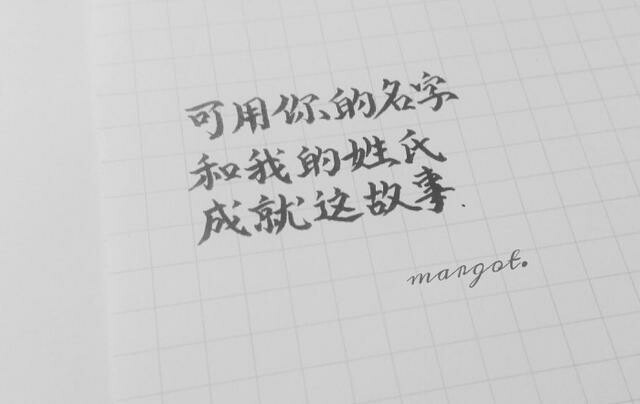 可用你的名字
和我的姓氏
成就这故事.
margot.